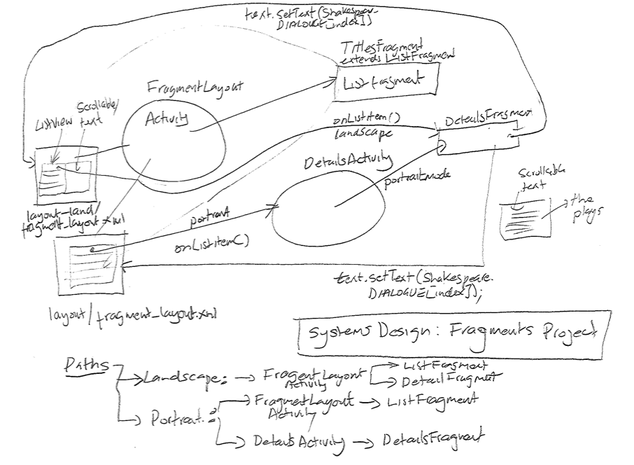 text.setText(Shakespeare.
DIALOGUE[index]]
TitlesFragment
extends ListFragment
ListFragment
FragmentLayout
Activity
ListView
Scrollable/
text
onListItem()
landscape
DetailsFragment
DetailsActivity
portraitmode
Scrollable
text
the
plays
layout-land/
fragment_layout.xml
portrait
onListItem()
layout/fragment_layout.xml
text.setText(Shakespeare.
DIALOGUE[index]);
Systems Design: Fragments Project
Paths
Landscape: → FragmentLayout
Activity
ListFragment
DetailFragment
Portrait: → FragmentLayout → ListFragment
Activity
DetailsActivity → DetailsFragment